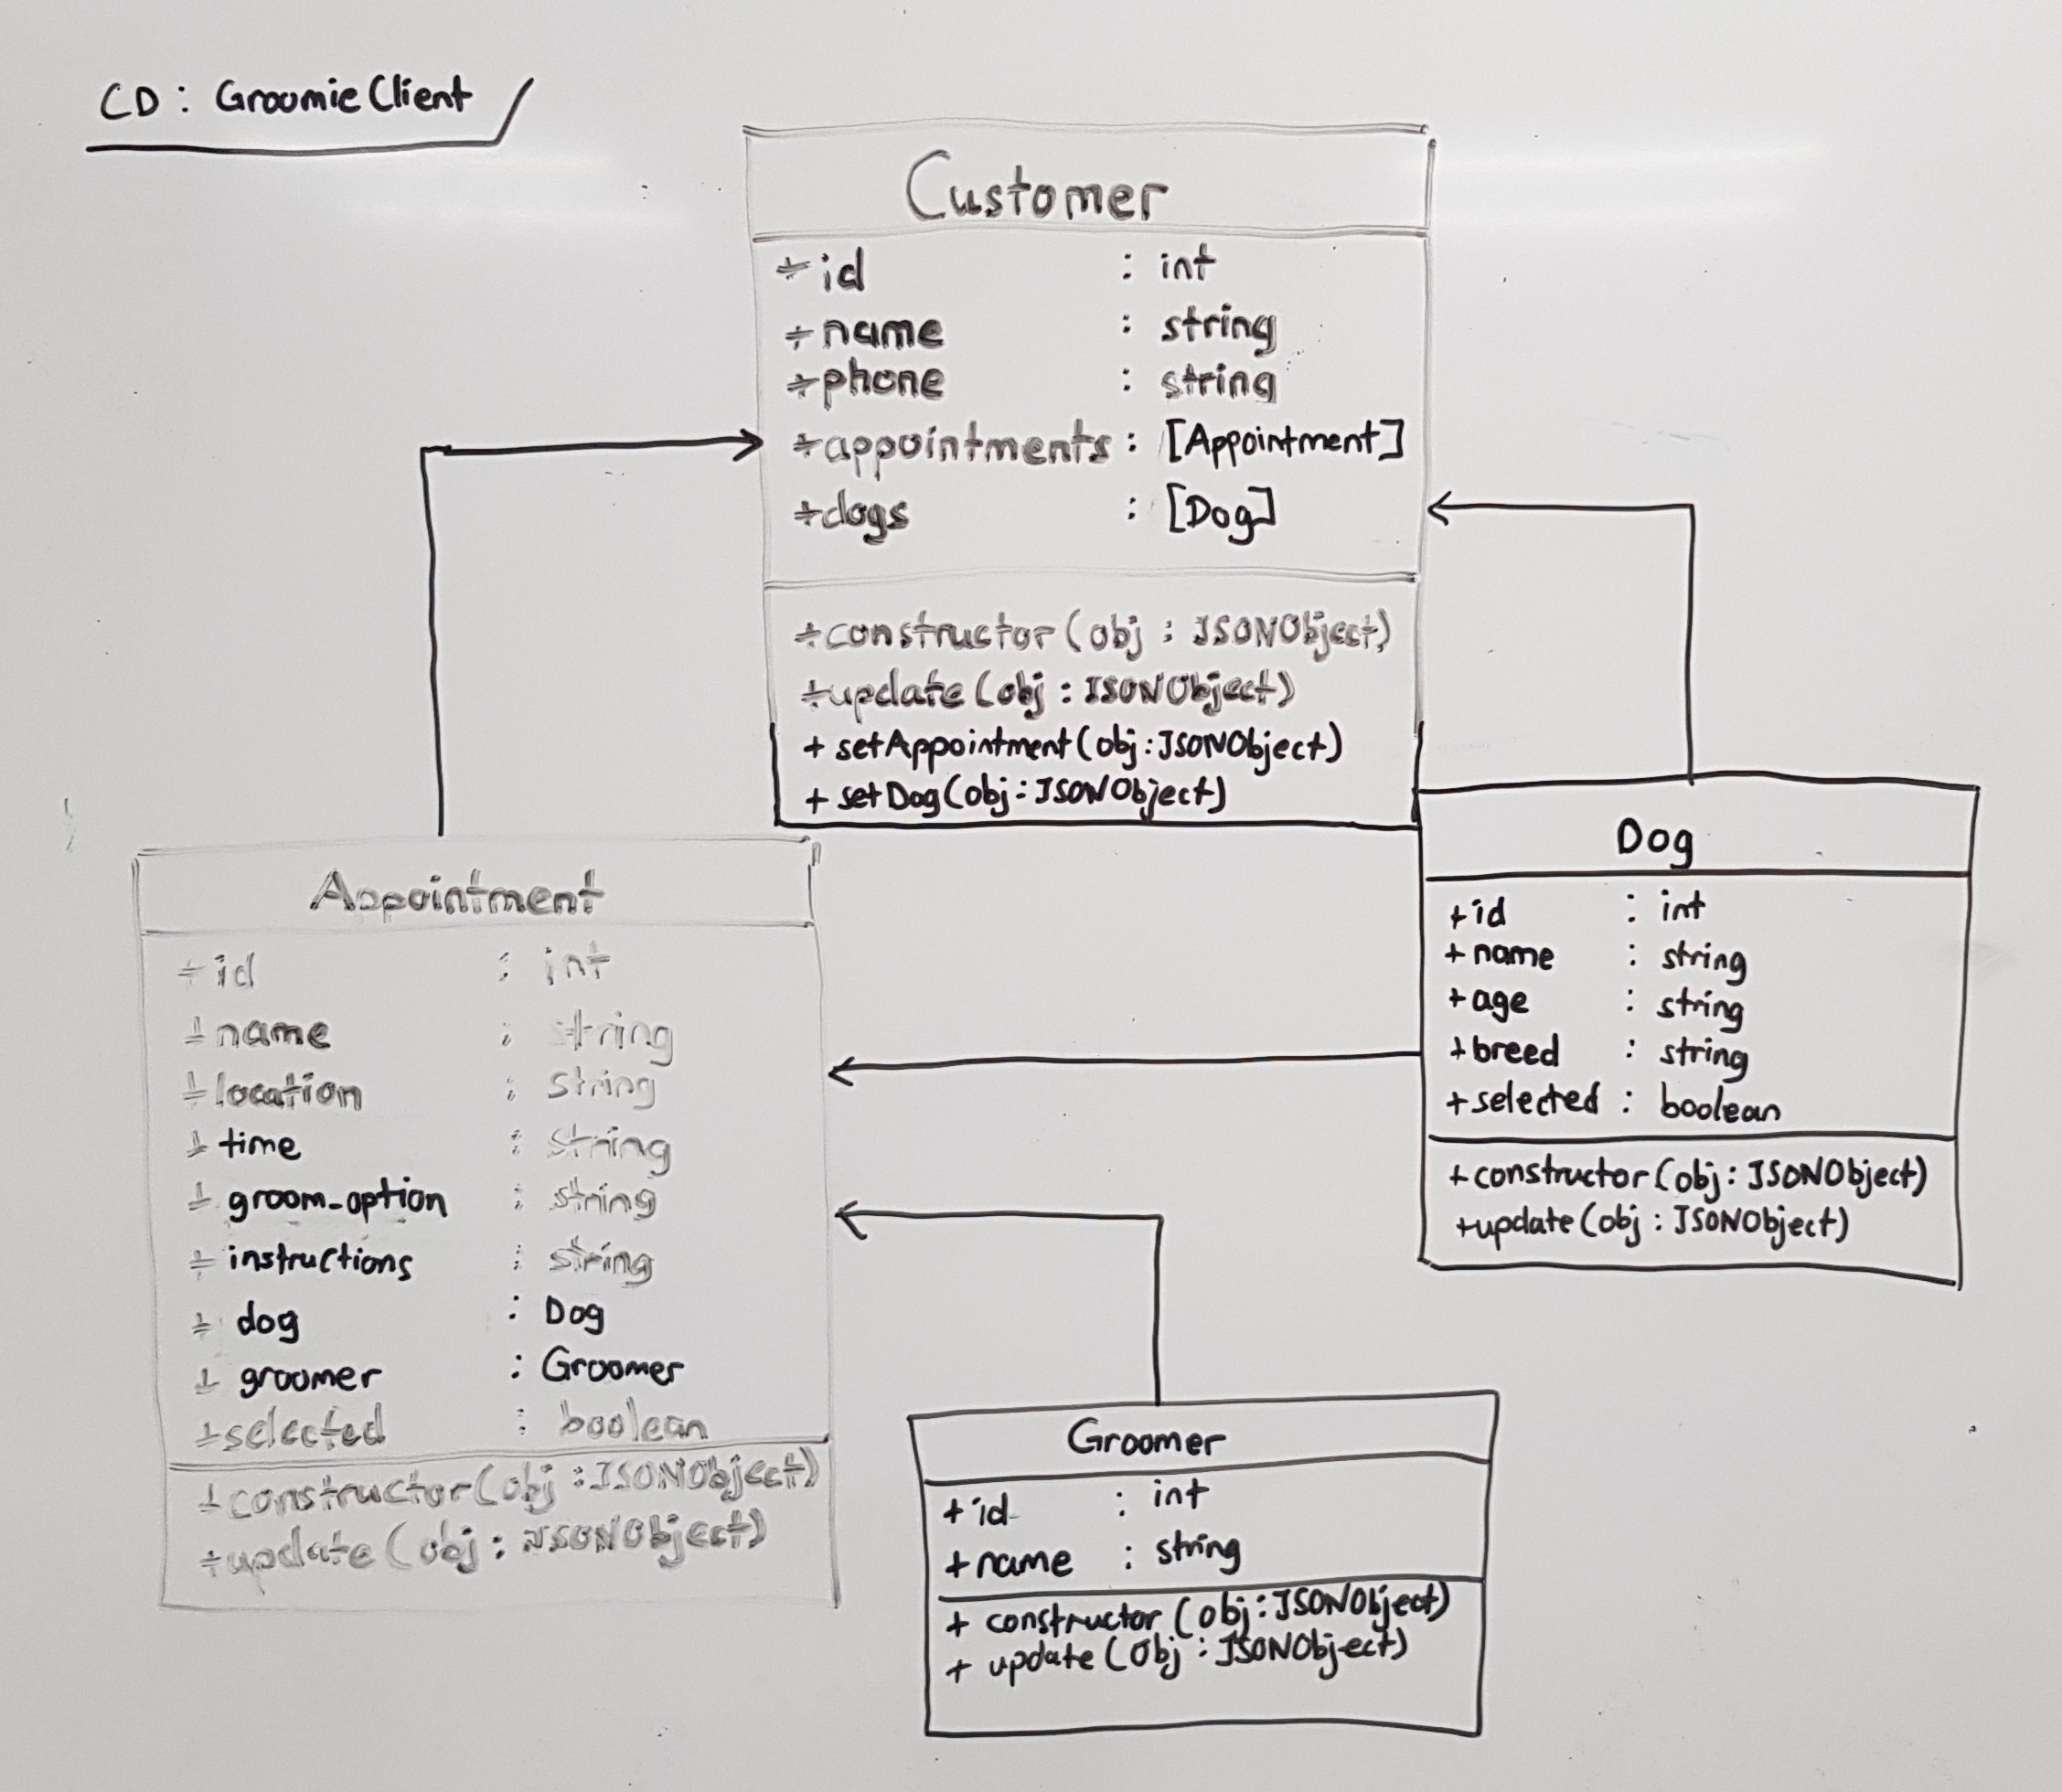 CD : GroomieClient
Customer
+id : int
+name : string
+phone : string
+appointments : [Appointment]
+dogs : [Dog]
+constructor(obj : JSONObject)
+update(obj : JSONObject)
+ setAppointment(obj:JSONObject)
+ setDog(obj:JSONObject)
Appointment
+id : int
+name : string
+location : string
+ time : string
+ groom_option : string
+ instructions : string
+ dog : Dog
+ groomer : Groomer
+selected : boolean
+constructor(obj :JSONObject)
+update(obj : JSONObject)
Dog
+id : int
+name : string
+age : string
+breed : string
+selected : boolean
+constructor(obj: JSONObject)
+update(obj : JSONObject)
Groomer
+id : int
+name : string
+ constructor(obj:JSONObject)
+ update(obj : JSONObject)